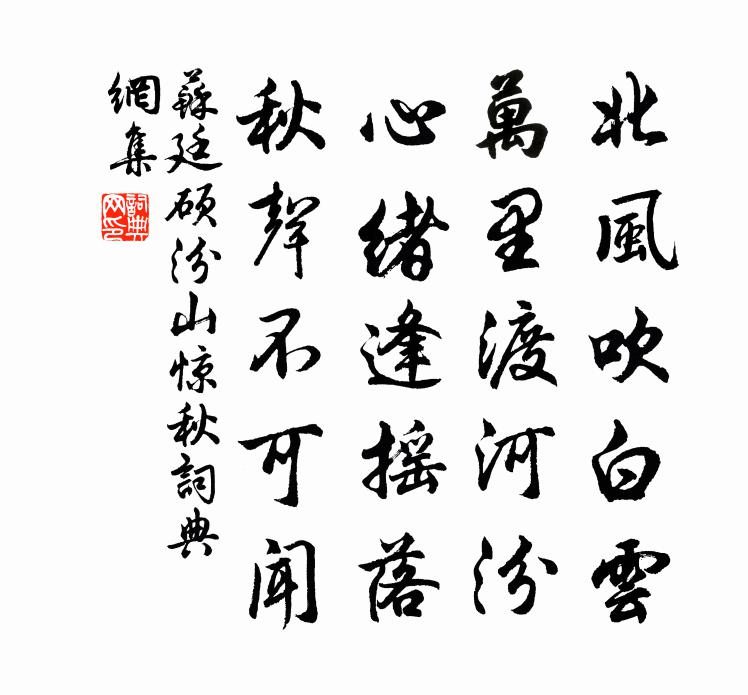 北風吹白雲
萬里渡河汾
心緒逢摇落
秋聲不可聞
蘇廷碩汾山惊秋詞典
網集
詞典网印